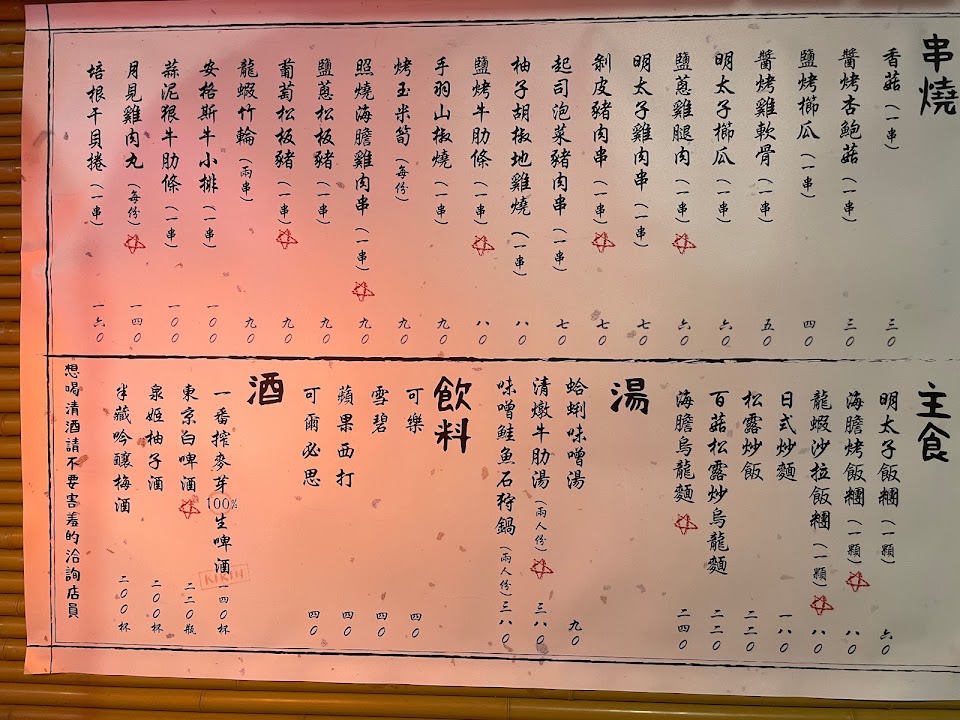 串燒
香菇(一串) 三〇
醬烤杏鮑菇(一串) 三〇
鹽烤櫛瓜(一串) 四〇
醬烤雞軟骨(一串) 五〇
明太子櫛瓜(一串) 六〇
鹽蔥雞腿肉(一串) 六〇
明太子雞肉串(一串) 七〇
剝皮豬肉串(一串) 七〇
起司泡菜豬肉串(一串) 七〇
柚子胡椒地雞燒(一串) 八〇
鹽烤牛肋條(一串) 八〇
手羽山椒燒(一串) 九〇
烤玉米筍(每份) 九〇
照燒海膽雞肉串(一串) 九〇
鹽蔥松板豬(一串) 九〇
葡萄松板豬(一串) 九〇
龍蝦竹輪(兩串) 九〇
安格斯牛小排(一串) 一〇〇
蒜泥猥牛肋條(一串) 一〇〇
月見雞肉丸(每份) 一四〇
培根干貝捲(一串) 一六〇
主食
明太子飯糰(一顆) 六〇
海膽烤飯糰(一顆) 八〇
龍蝦沙拉飯糰(一顆) 八〇
日式炒麵 一八〇
松露炒飯 二二〇
百菇松露炒烏龍麵 二二〇
海膽烏龍麵 二四〇
湯
蛤蜊味噌湯 九〇
清燉牛肋湯(兩人份) 三八〇
味噌鮭魚石狩鍋(兩人份) 三八〇
飲料
可樂 四〇
雪碧 四〇
蘋果西打 四〇
可爾必思 四〇
酒
一番搾麥芽100%生啤酒 一四〇杯
KIRIN
東京白啤酒 二二〇瓶
泉姬柚子酒 二〇〇杯
半藏吟釀梅酒 二〇〇杯
想喝清酒請不要害羞的洽詢店員